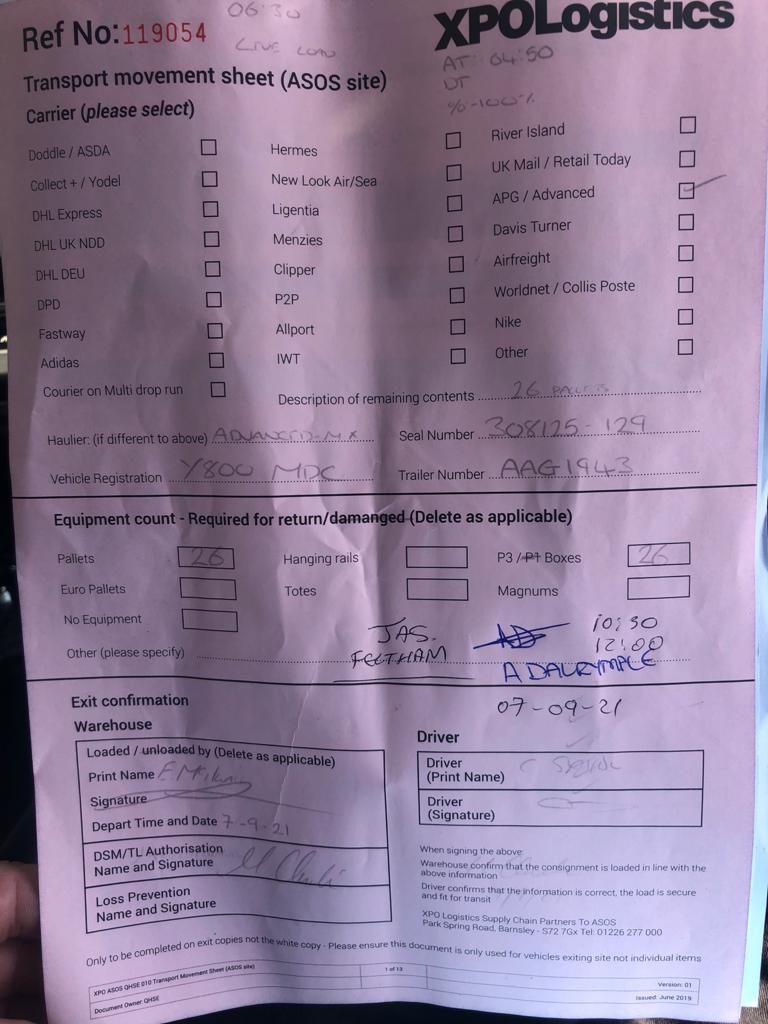 Ref No: 119054
06:30
LIVE LOAD
XPOLogistics
AT: 04:50
DT
%-100%
Transport movement sheet (ASOS site)
Carrier (please select)
Doddle / ASDA
Collect + / Yodel
DHL Express
DHL UK NDD
DHL DEU
DPD
Fastway
Adidas
Courier on Multi drop run
Hermes
New Look Air/Sea
Ligentia
Menzies
Clipper
P2P
Allport
IWT
River Island
UK Mail / Retail Today
APG / Advanced
Davis Turner
Airfreight
Worldnet / Collis Poste
Nike
Other
Description of remaining contents 26 PALLETS
Haulier: (if different to above) ADVANCED-MX
Seal Number 308125-129
Vehicle Registration Y800 MDC
Trailer Number AAG1943
Equipment count - Required for return/damaged (Delete as applicable)
Pallets 26
Hanging rails
P3 / P1 Boxes 26
Euro Pallets
Totes
Magnums
No Equipment
Other (please specify)
JAS.
FELTHAM
10:30
12:00
A DALRYMPLE
07-09-21
Exit confirmation
Warehouse
Loaded / unloaded by (Delete as applicable)
Print Name
Signature
Depart Time and Date 7-9-21
DSM/TL Authorisation
Name and Signature
Loss Prevention
Name and Signature
Driver
Driver
(Print Name)
Driver
(Signature)
When signing the above:
Warehouse confirm that the consignment is loaded in line with the
above information
Driver confirms that the information is correct, the load is secure
and fit for transit
XPO Logistics Supply Chain Partners To ASOS
Park Spring Road, Barnsley - S72 7Gx Tel: 01226 277 000
Only to be completed on exit copies not the white copy - Please ensure this document is only used for vehicles exiting site not individual items
XPO ASOS QHSE 010 Transport Movement Sheet (ASOS site)
1 of 13
Version: 01
Document Owner QHSE
Issued: June 2019